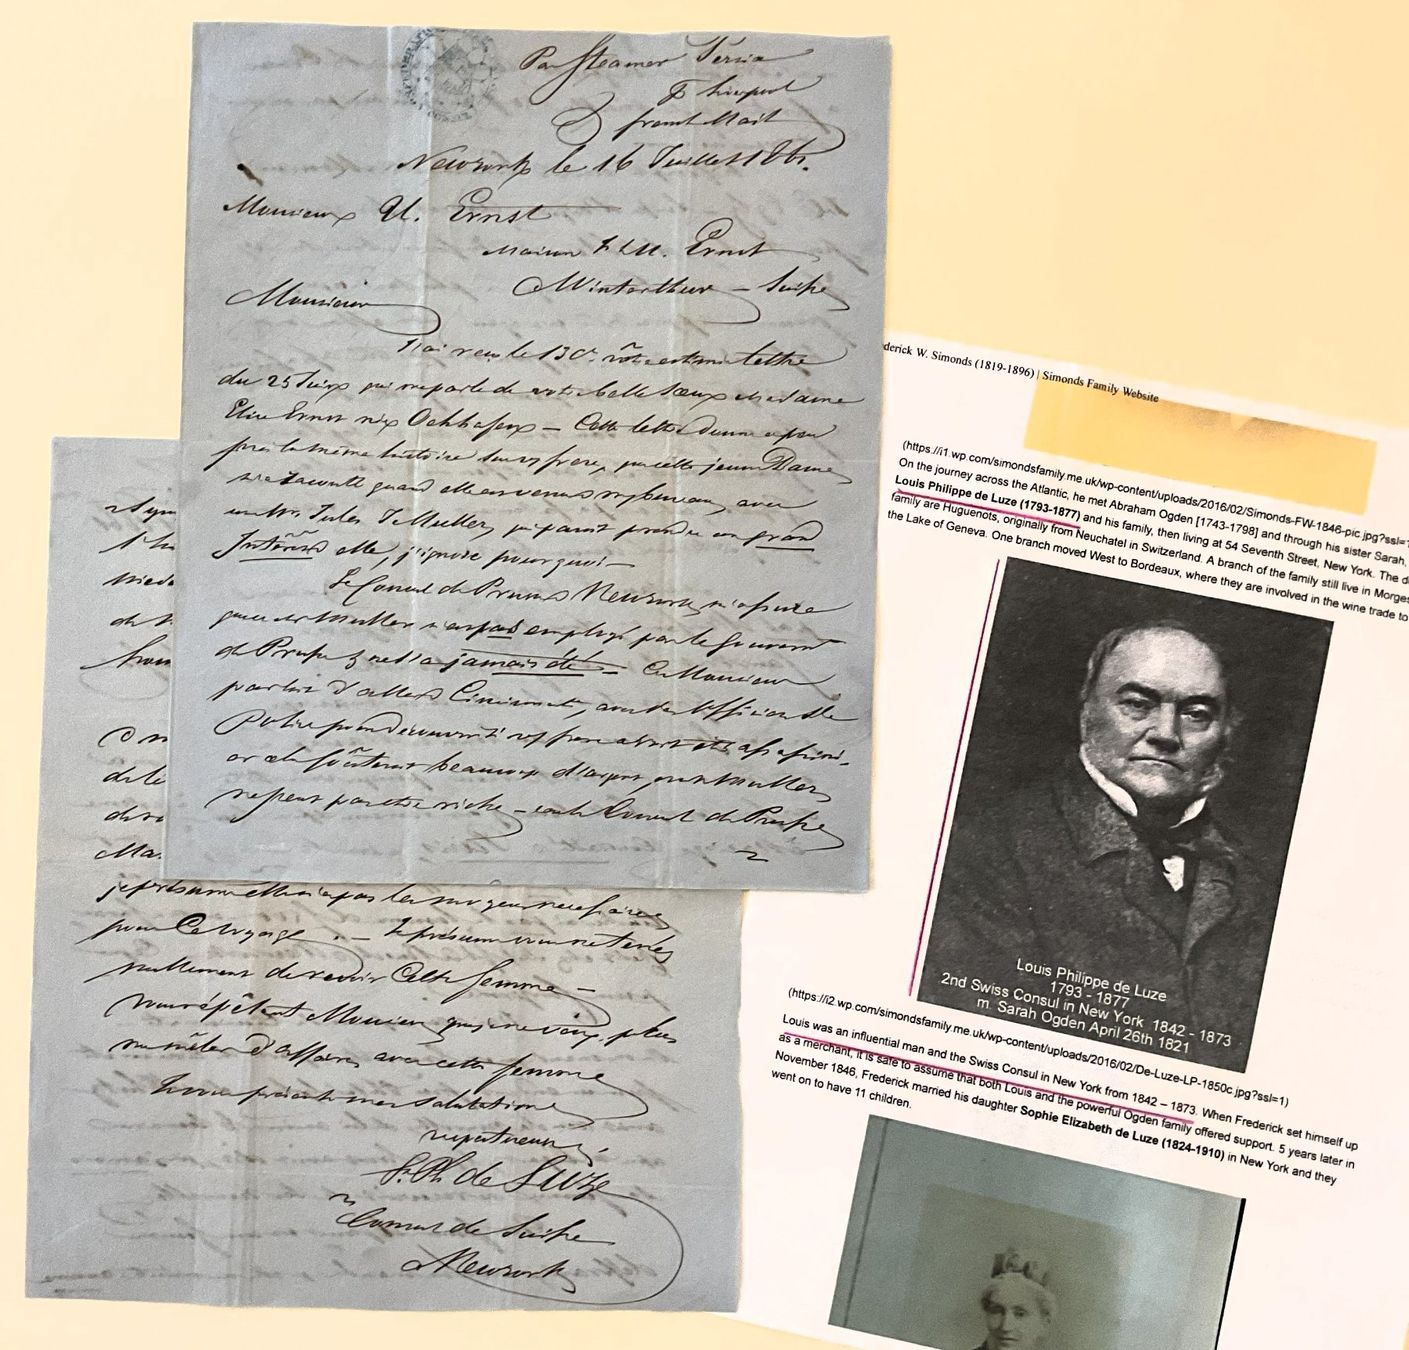 Par Steamer Persia
p Liverpool
Newyork le 16 Juillet
Monsieur U. Ernst
Maison Ernst
Winterthur – Suisse
Monsieur
J'ai reçu le 13 Ct. votre estimée lettre
du 25 Juin qui me parle de votre belle soeur Madame
Elise Ernst née – Cette lettre donne à peu
près la même histoire que cette jeune Dame
m'a raconté quand elle est venue à mon bureau, avec
un Mr. Jules Muller, qui parait prendre un grand
Intérêt à elle, j'ignore pourquoi –
Le Consul de Prusse à Newyork m'assure
que ce Mr Muller n'est pas employé par le Gouvernt
de Prusse & ne l'a jamais été – Ce Monsieur
parlait d'aller à Cincinnati, avec des Officiers de
Police pour découvrir si votre frère a été assassiné –
or cela coûterait beaucoup d'argent, or Mr Muller
ne peut pas être riche – car le Consul de Prusse
Ma
je présume elle n'a pas les moyens nécessaires
pour Ce voyage. – Je présume vous ne tenez
nullement de revoir Cette femme –
vous répétant Monsieur que je ne veux plus
me mêler d'affaires avec cette femme
Je vous présente mes salutations
respectueuses
L. Ph. de Luze
Consul de Suisse
à Newyork
derick W. Simonds (1819-1896) | Simonds Family Website
(https://i1.wp.com/simondsfamily.me.uk/wp-content/uploads/2016/02/Simonds-FW-1846-pic.jpg?ssl=
On the journey across the Atlantic, he met Abraham Ogden [1743-1798] and through his sister Sarah,
Louis Philippe de Luze (1793-1877) and his family, then living at 54 Seventh Street, New York. The d
family are Huguenots, originally from Neuchatel in Switzerland. A branch of the family still live in Morges
the Lake of Geneva. One branch moved West to Bordeaux, where they are involved in the wine trade to
Louis Philippe de Luze
1793 - 1877
2nd Swiss Consul in New York 1842 - 1873
m. Sarah Ogden April 26th 1821
(https://i2.wp.com/simondsfamily.me.uk/wp-content/uploads/2016/02/De-Luze-LP-1850c.jpg?ssl=1)
Louis was an influential man and the Swiss Consul in New York from 1842 – 1873. When Frederick set himself up
as a merchant, it is safe to assume that both Louis and the powerful Ogden family offered support. 5 years later in
November 1846, Frederick married his daughter Sophie Elizabeth de Luze (1824-1910) in New York and they
went on to have 11 children.